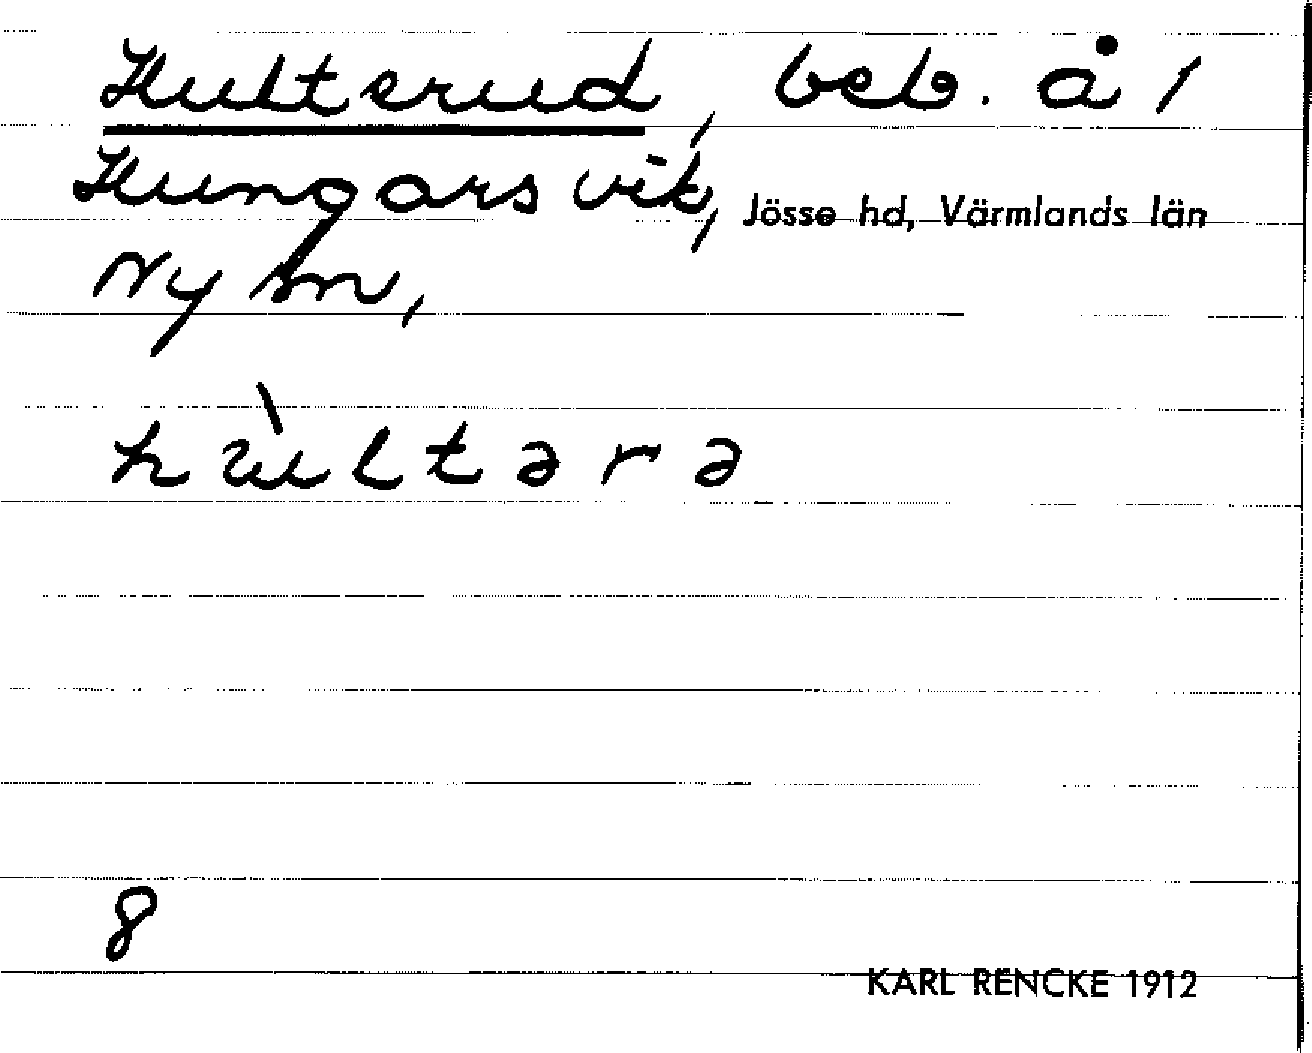 Hulterud, beb. å 1
Hungarsvik, Jösse hd, Värmlands län
Ny sn,
hùltərə
8
KARL RENCKE 1912